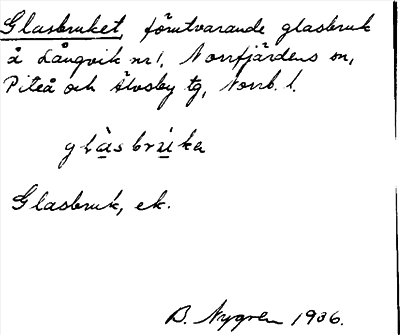 Glasbruket, förutvarande glasbruk
å Långvik nr 1, Norrfjärdens sn,
Piteå och Älvsby tg, Norrb. l.
glàsbrúka
Glasbruk, ek.
B. Nygren 1936.